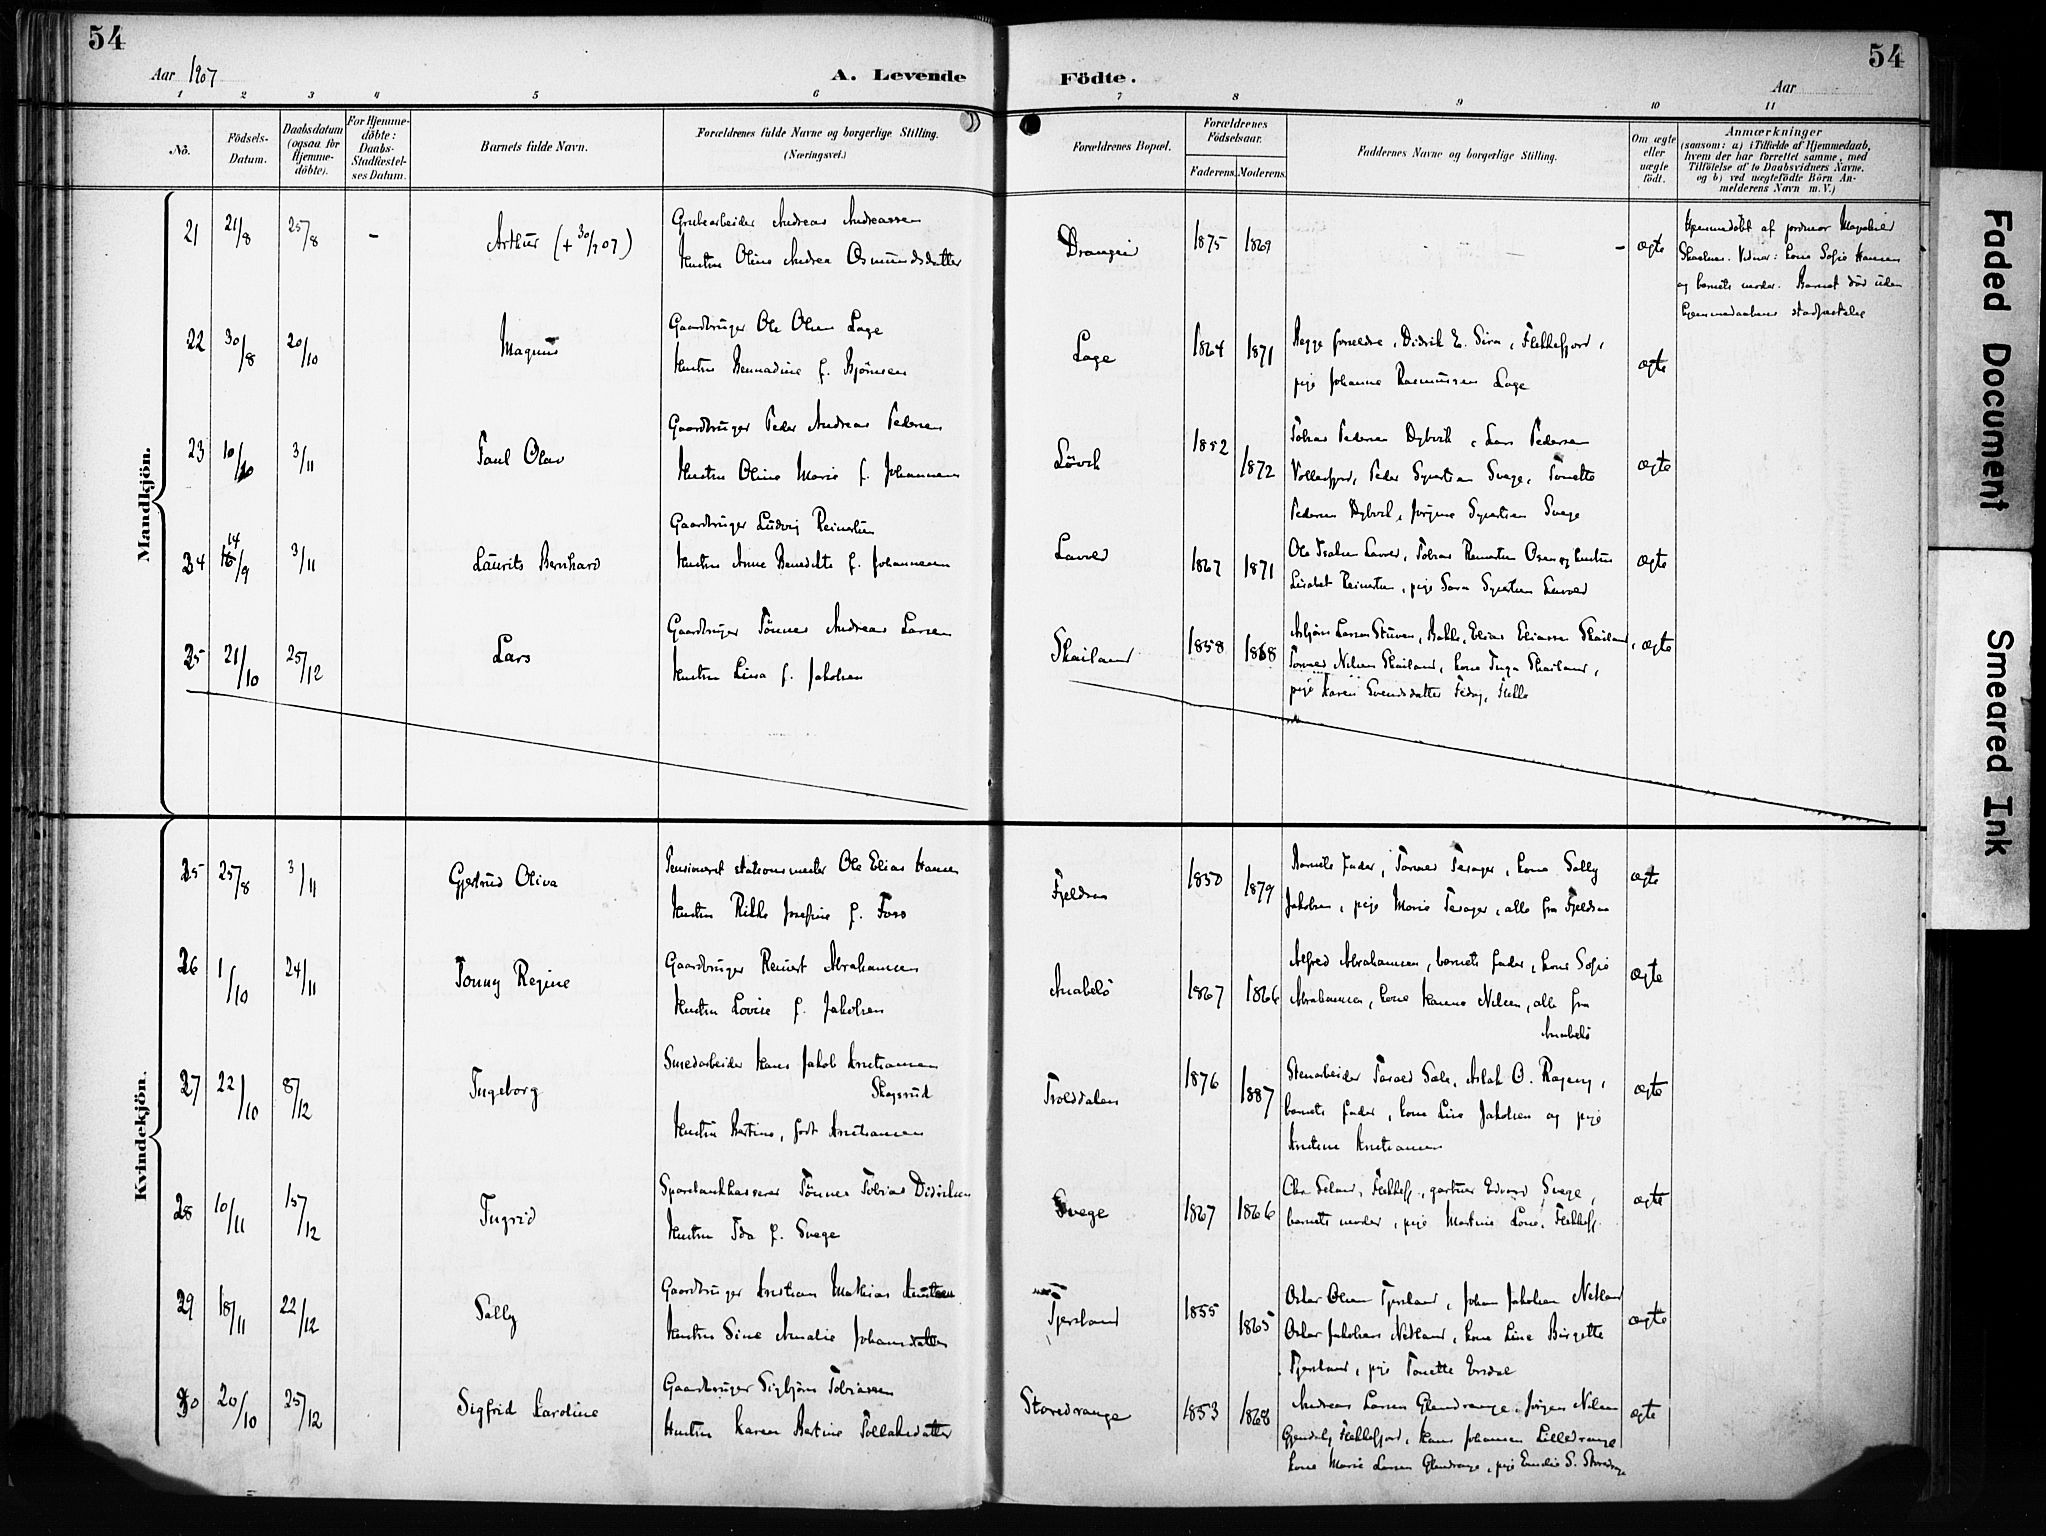 54
Aar 1907
A. Levende
Födte.
54
Aar
1 2 3 4 5 6 7 8 9 10 11
No.
Födsels-Datum.
Daabsdatum (ogsaa for Hjemme-döbte).
For Hjemme-döbte: Daabs-Stadfæstel-ses Datum.
Barnets fulde Navn.
Forældrenes fulde Navne og borgerlige Stilling.
(Næringsvei.)
Forældrenes Bopæl.
Forældrenes Födselsaar.
Faderens. Moderens.
Faddernes Navne og borgerlige Stilling.
Om ægte eller uægte födt.
Anmærkninger
(saasom: a) i Tilfælde af Hjemmedaab,
hvem der har forrettet samme, med
Tilföielse af to Daabsvidners Navne.
og b) ved uægtefödte Börn An-
melderens Navn m.V.)
Mandkjön.
21 21/8 25/8 - Arthur (+ 30/9 07)
Grubearbeider Andreas Andreassen
Hustru Oline Andrea Osmundsdatter
Drangei 1875 1869 - ægte
Hjemmedøbt af jordmor
Vidner: kone Sofie Hansen
og barnets moder. Barnet død uden
hjemmedaabens stadfæstelse
22 30/8 20/10 Magnus
Gaardbruger Ole Olsen Lage
Hustru Bernadine f. Bjørnsen
Lage 1864 1871
Begge forældre, Didrik E. Sira, Flekkefjord,
pige Johanne Rasmussen Lage
ægte
23 10/10 3/11 Paul Olav
Gaardbruger Peder Andreas Pedersen
Hustru Oline Marie f. Johannesen
Lövik 1852 1872
Tobias Pedersen Dybvik, Lars Pedersen
Peder Syvertsen Svege, Tonette
Pedersen Dybvik, Jørgine Syvertsen Svege
ægte
24 14/9 3/11 Laurits Bernhard
Gaardbruger Ludvig Reinertsen
Hustru Anne Benedikte f. Johannesen
Lavold 1867 1871
Ole Lavold, Tobias Reinertsen Osen og hustru
Lisabet Reinertsen, pige Sara Syvertsen Lavold
ægte
25 21/10 25/12 Lars
Gaardbruger Tönnes Andreas Larsen
Hustru Lina f. Jakobsen
Skailand 1858 1868
Asbjörn Larsen Stuven, Bakke, Elias Eliassen Skailand,
Tonnes Nilsen Skailand, kone Inga Skailand,
pige Karen Svendsdatter Fedog, Flekke
ægte
Kvindekjön.
25 25/8 3/11 Gjertrud Oliva
Pensioneret stationsmester Ole Elias Hansen
Hustru Rikke Josefine f. Foss
Fjeldsaa 1850 1879
Barnets fader, Tonnes Tesager, kone Sally
Jakobsen, pige Marie Tesager, alle fra Fjeldsaa
ægte
26 1/10 24/11 Tonny Regine
Gaardbruger Reinert Abrahamsen
Hustru Lovise f. Jakobsen
Anabelö 1867 1866
Alfred Abrahamsen, barnets fader, kone Sofie
Abrahamsen, kone Hanna Nilsen, alle fra
Anabelö
ægte
27 22/10 8/12 Ingeborg
Smedarbeider Hans Jakob Kristiansen
Skogsrud
Hustru Bertine, født Kristiansen
Trolddalen 1876 1887
Stenarbeider Tarald Sele, Aslak O. Røgeng,
barnets fader, kone Lise Jakobsen og pige
Kristine Kristiansen
ægte
28 10/11 15/12 Ingrid
Sparebankkasserer Tönnes Tobias Didriksen
Hustru Ida f. Svege
Svege 1867 1866
Chr. Seland, Flekkefj., gartner Edvard Svege,
barnets moder, pige Martine Lone, Flekkefj.
ægte
29 18/11 22/12 Sally
Gaardbruger Kristian Mathias Knutsen
Hustru Sine Amalie Johansdatter
Tjersland 1855 1865
Oskar Olsen Tjersland, Johan Jakobsen Netland
Oskar Jakobsen Netland, kone Line Birgette
Tjersland, pige Tonette Ersdal
ægte
30 20/10 25/12 Sigfrid Karoline
Gaardbruger Sigbjörn Tobiassen
Hustru Karen Bertine Tollaksdatter
Storedrange 1853 1868
Andreas Larsen Glendrange, Jörgen Nilsen
Gjendal, Flekkefjord, Hans Johansen Lilledrange
kone Marie Larsen Glendrange, pige Emilie S. Storedrange
ægte
Faded Document
Smeared Ink